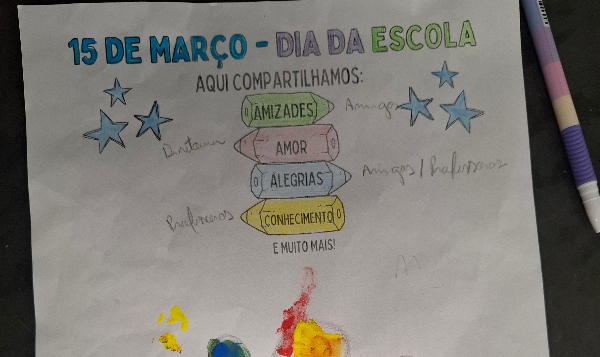 15 DE MARÇO - DIA DA ESCOLA
AQUI COMPARTILHAMOS:
AMIZADES Amigos
AMOR
ALEGRIAS Amigos / Professores
Professores CONHECIMENTO
E MUITO MAIS!